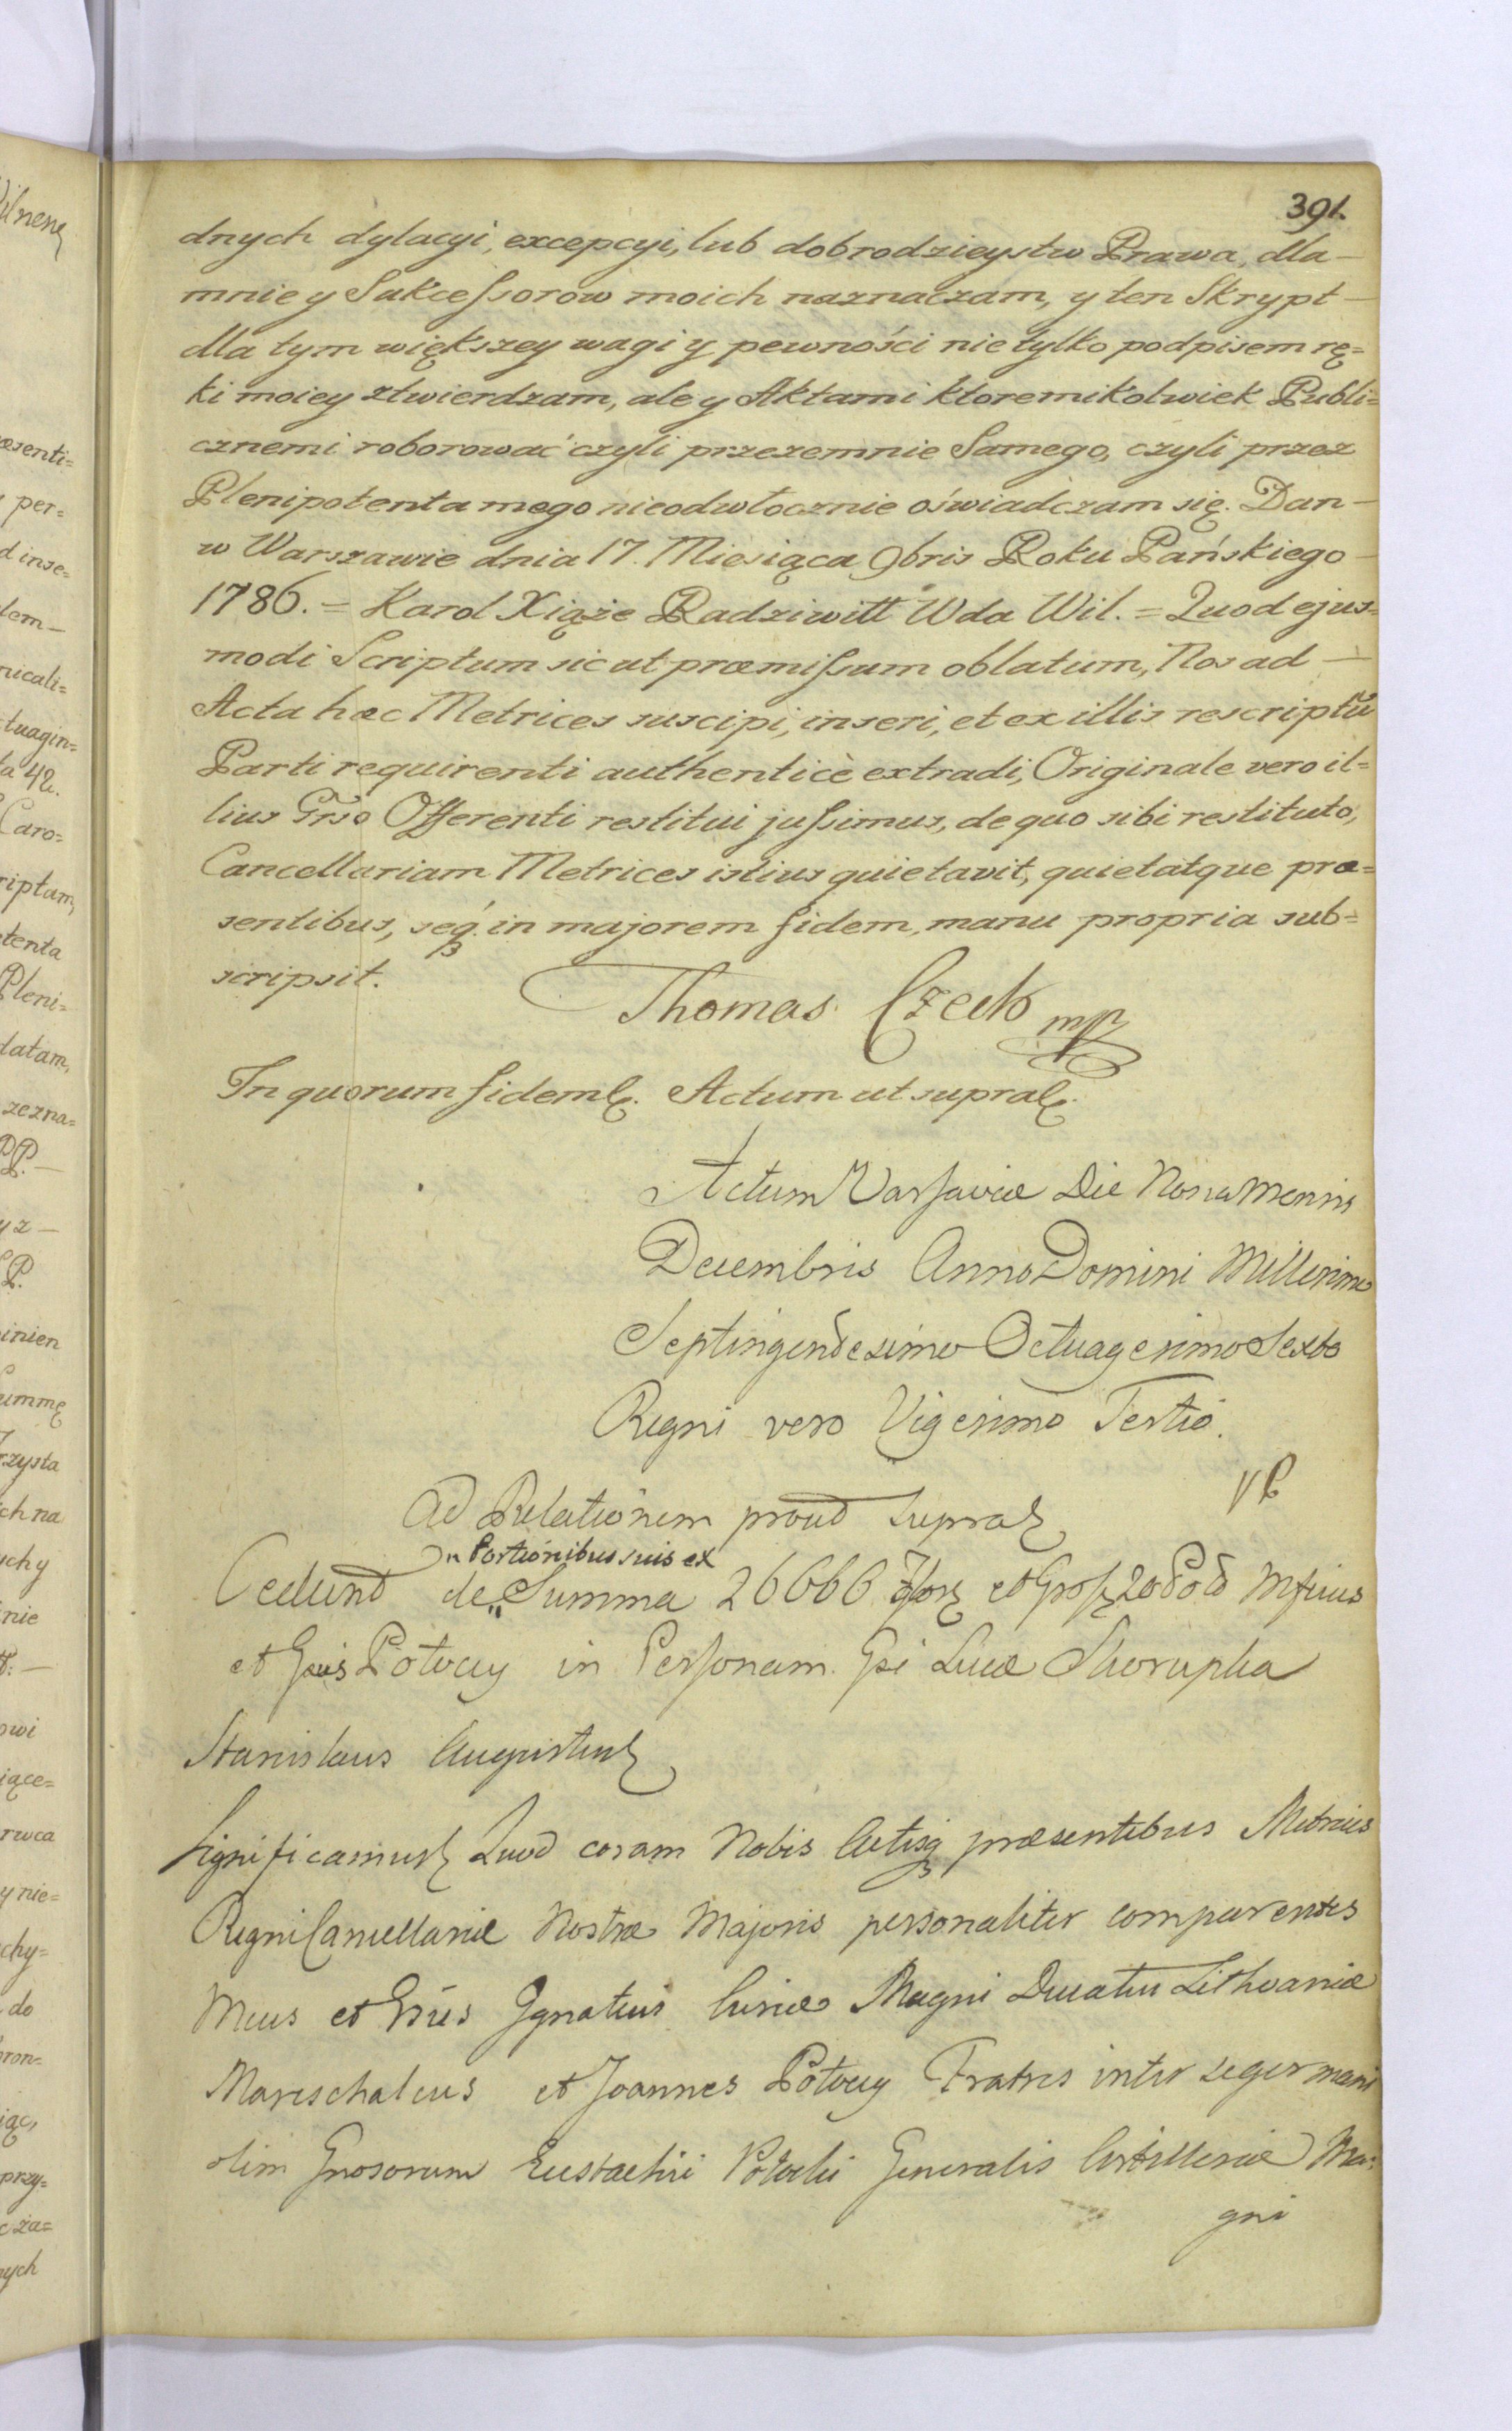 391.
dnych dylacyi, excepcyi, lub dobrodzieystw Prawa, dla —
mnie y Sukceſsorow moich naznaczam, y ten Skrypt —
dla tym większey wagi y pewności nie tylko podpisem rę=
ki moiey ztwierdzam, ale y Aktami ktoremikolwiek Publi=
cznemi roborować czyli przezemnie Samego, czyli przez
Plenipotenta mego nieodwłocznie oświadczam się. Dan —
w Warszawie dnia 17. Miesiąca 9bris Roku Pańskiego —
1786. = Karol Xiąże Radziwiłł Wda Wil. = Quod ejus=
modi Scriptum sic ut præmiſsum oblatum, Nos ad —
Acta hæc Metrices suscipi, inseri, et ex illis rescriptũ
Parti requirenti authenticè extradi, Originale vero il=
lius Grso Offerenti restitui juſsimus, de quo sibi restituto,
Cancellariam Metrices istius quietavit, quietatque præ=
sentibus, seq́ in majorem fidem, manu propria sub=
scripsit.
Thomas Czeck mp
In quorum fidem. Actum ut supra.
Actum Varſaviæ Die Nona Mensis
Decembris Anno Domini Millesimo
Septingendesimo Octuagesimo Sexto
Regni vero Vigesimo Tertio.
Ad Relationem prout supra
VP
In Portionibus suis ex
Cedunt de „ Summa 26666 et Groſ 20
et Potocy in Perſonam Gsi Lucæ Skorupka
Stanislaus Augustus
Significamus Quod coram Nobis Actisq præsentibus Metrices
Regni Cancellariæ Nostræ Majoris personaliter comparentes
Mcus et Ignatius Curiæ Magni Ducatus Lithvaniæ
Mareschalcus et Joannes Potocy Fratres inter se germani
olim Gnosorum Eustachii Potocki Generalis Artilleriæ Ma=
gni